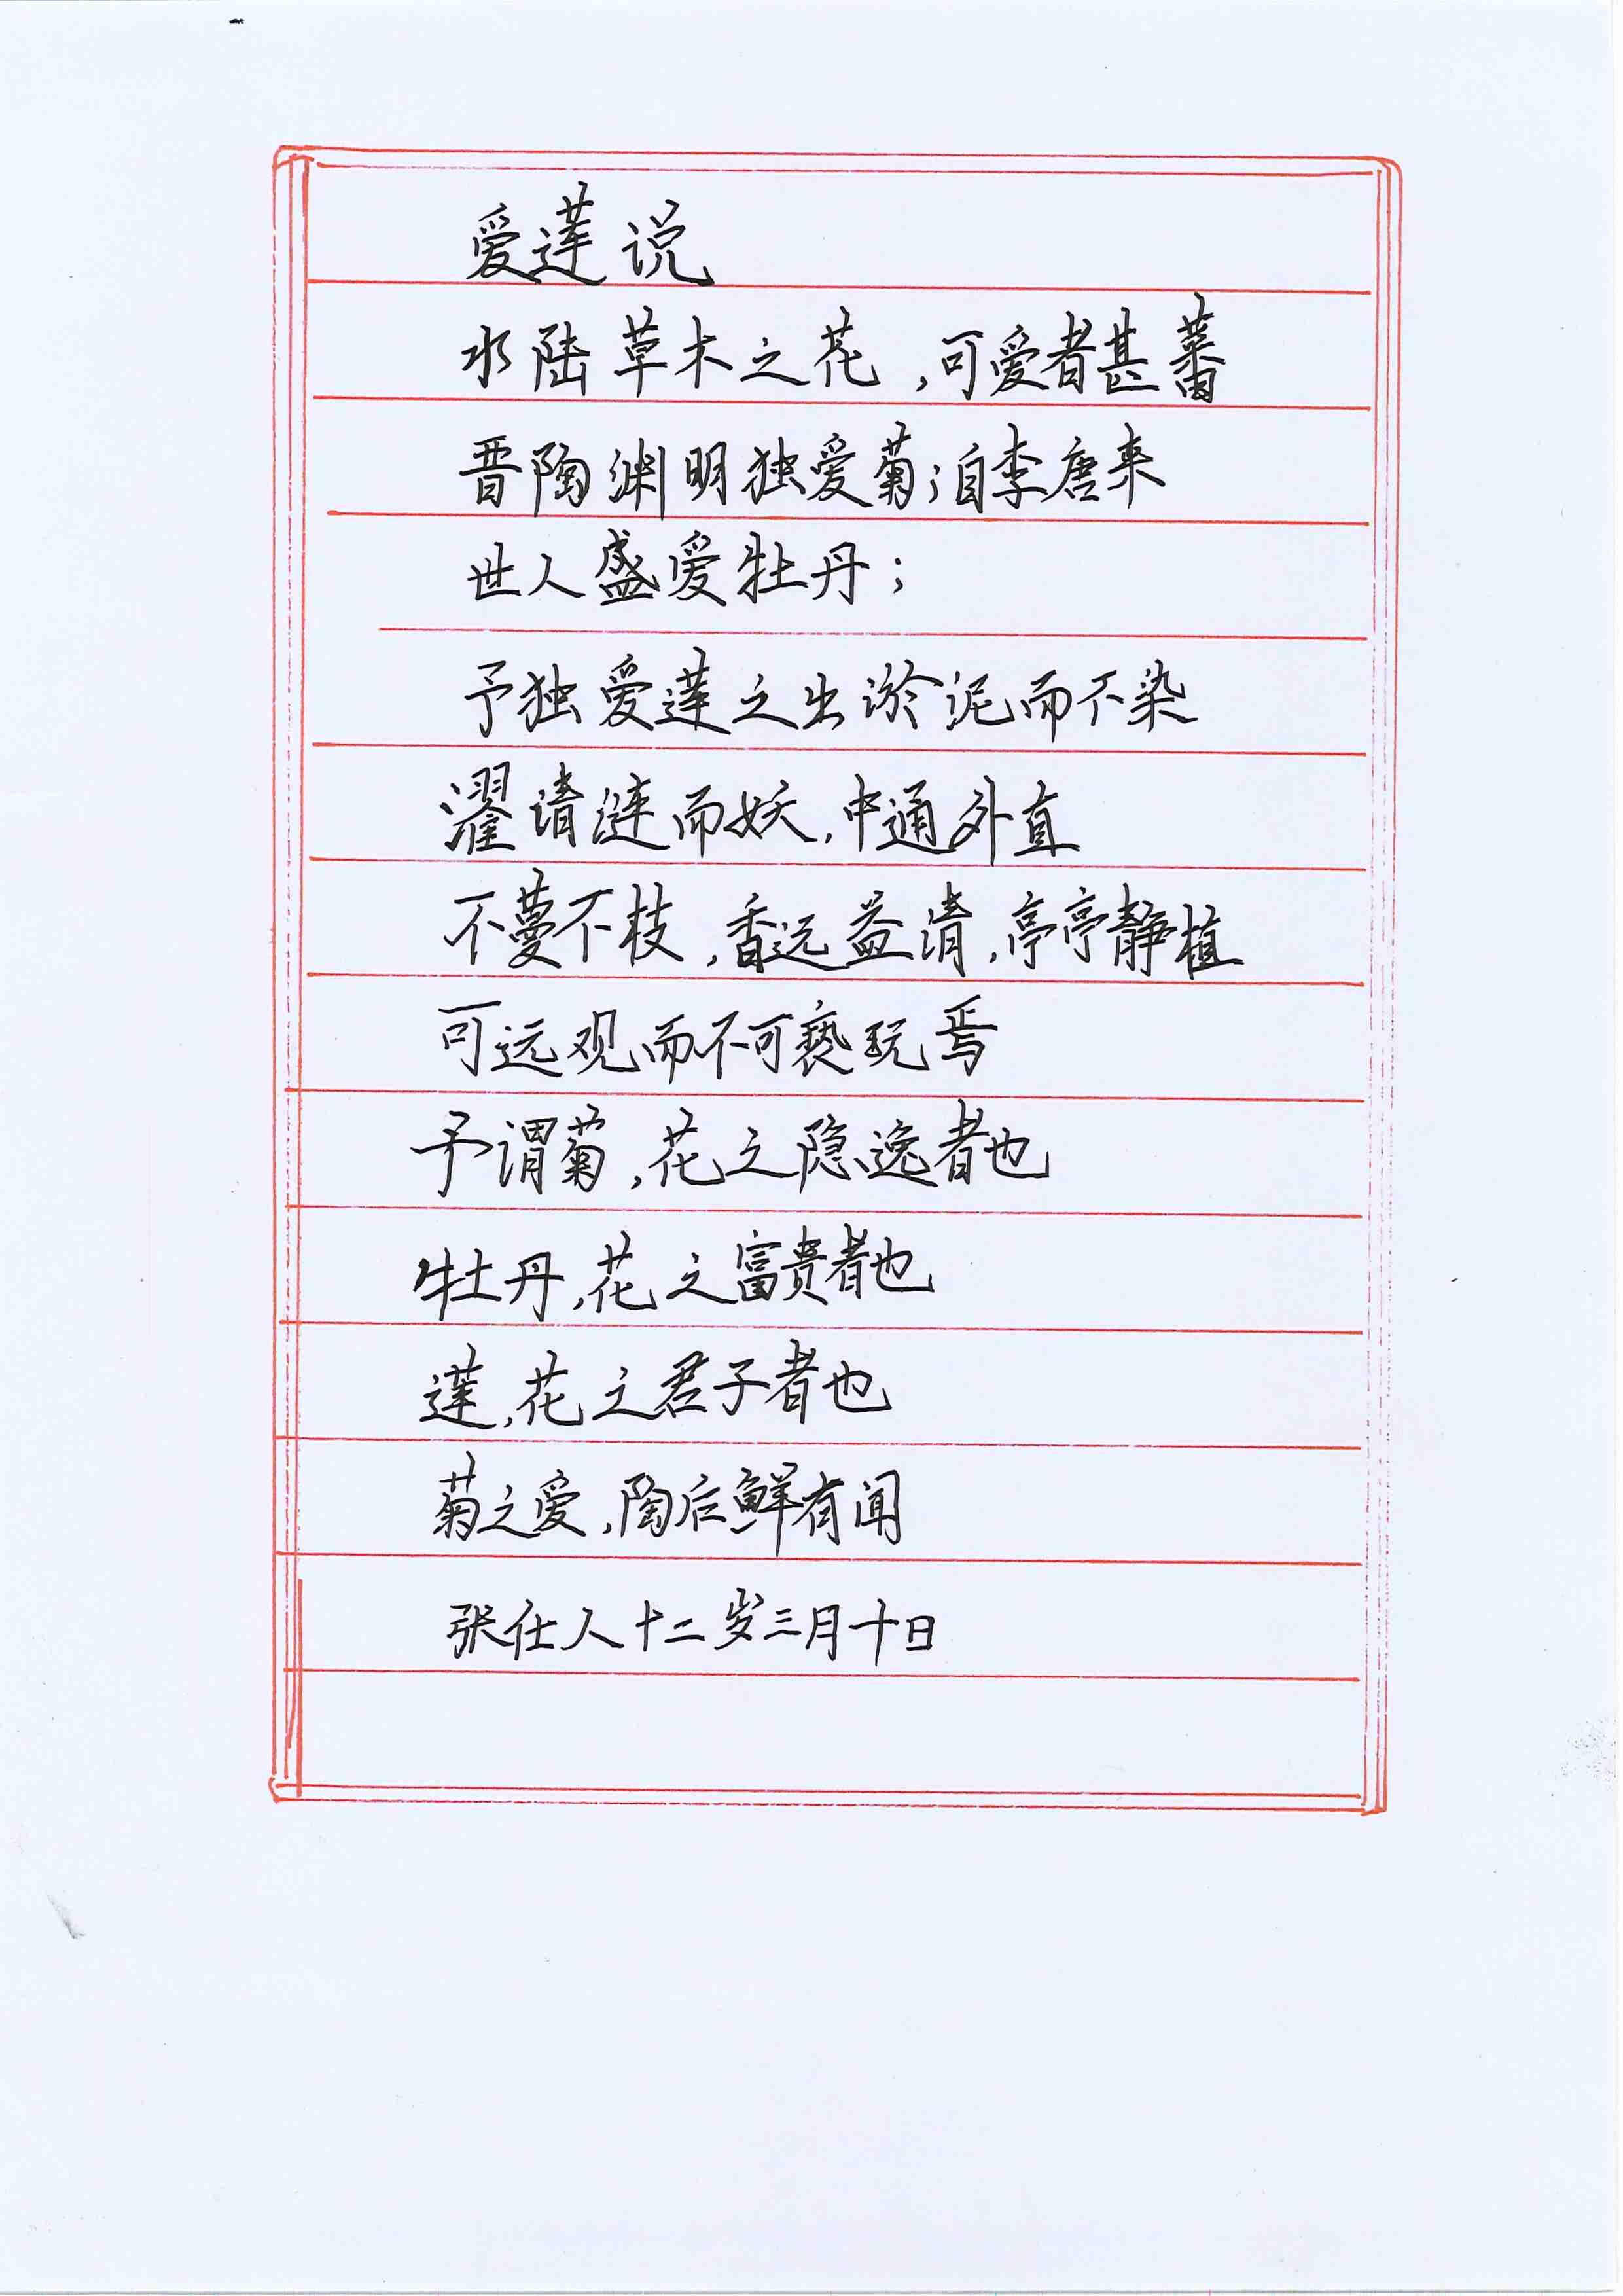 爱莲说
水陆草木之花,可爱者甚蕃
晋陶渊明独爱菊;自李唐来
世人盛爱牡丹;
予独爱莲之出淤泥而不染
濯清涟而妖,中通外直
不蔓不枝,香远益清,亭亭静植
可远观而不可亵玩焉
予谓菊,花之隐逸者也
牡丹,花之富贵者也
莲,花之君子者也
菊之爱,陶后鲜有闻
张仕人十二岁三月十日